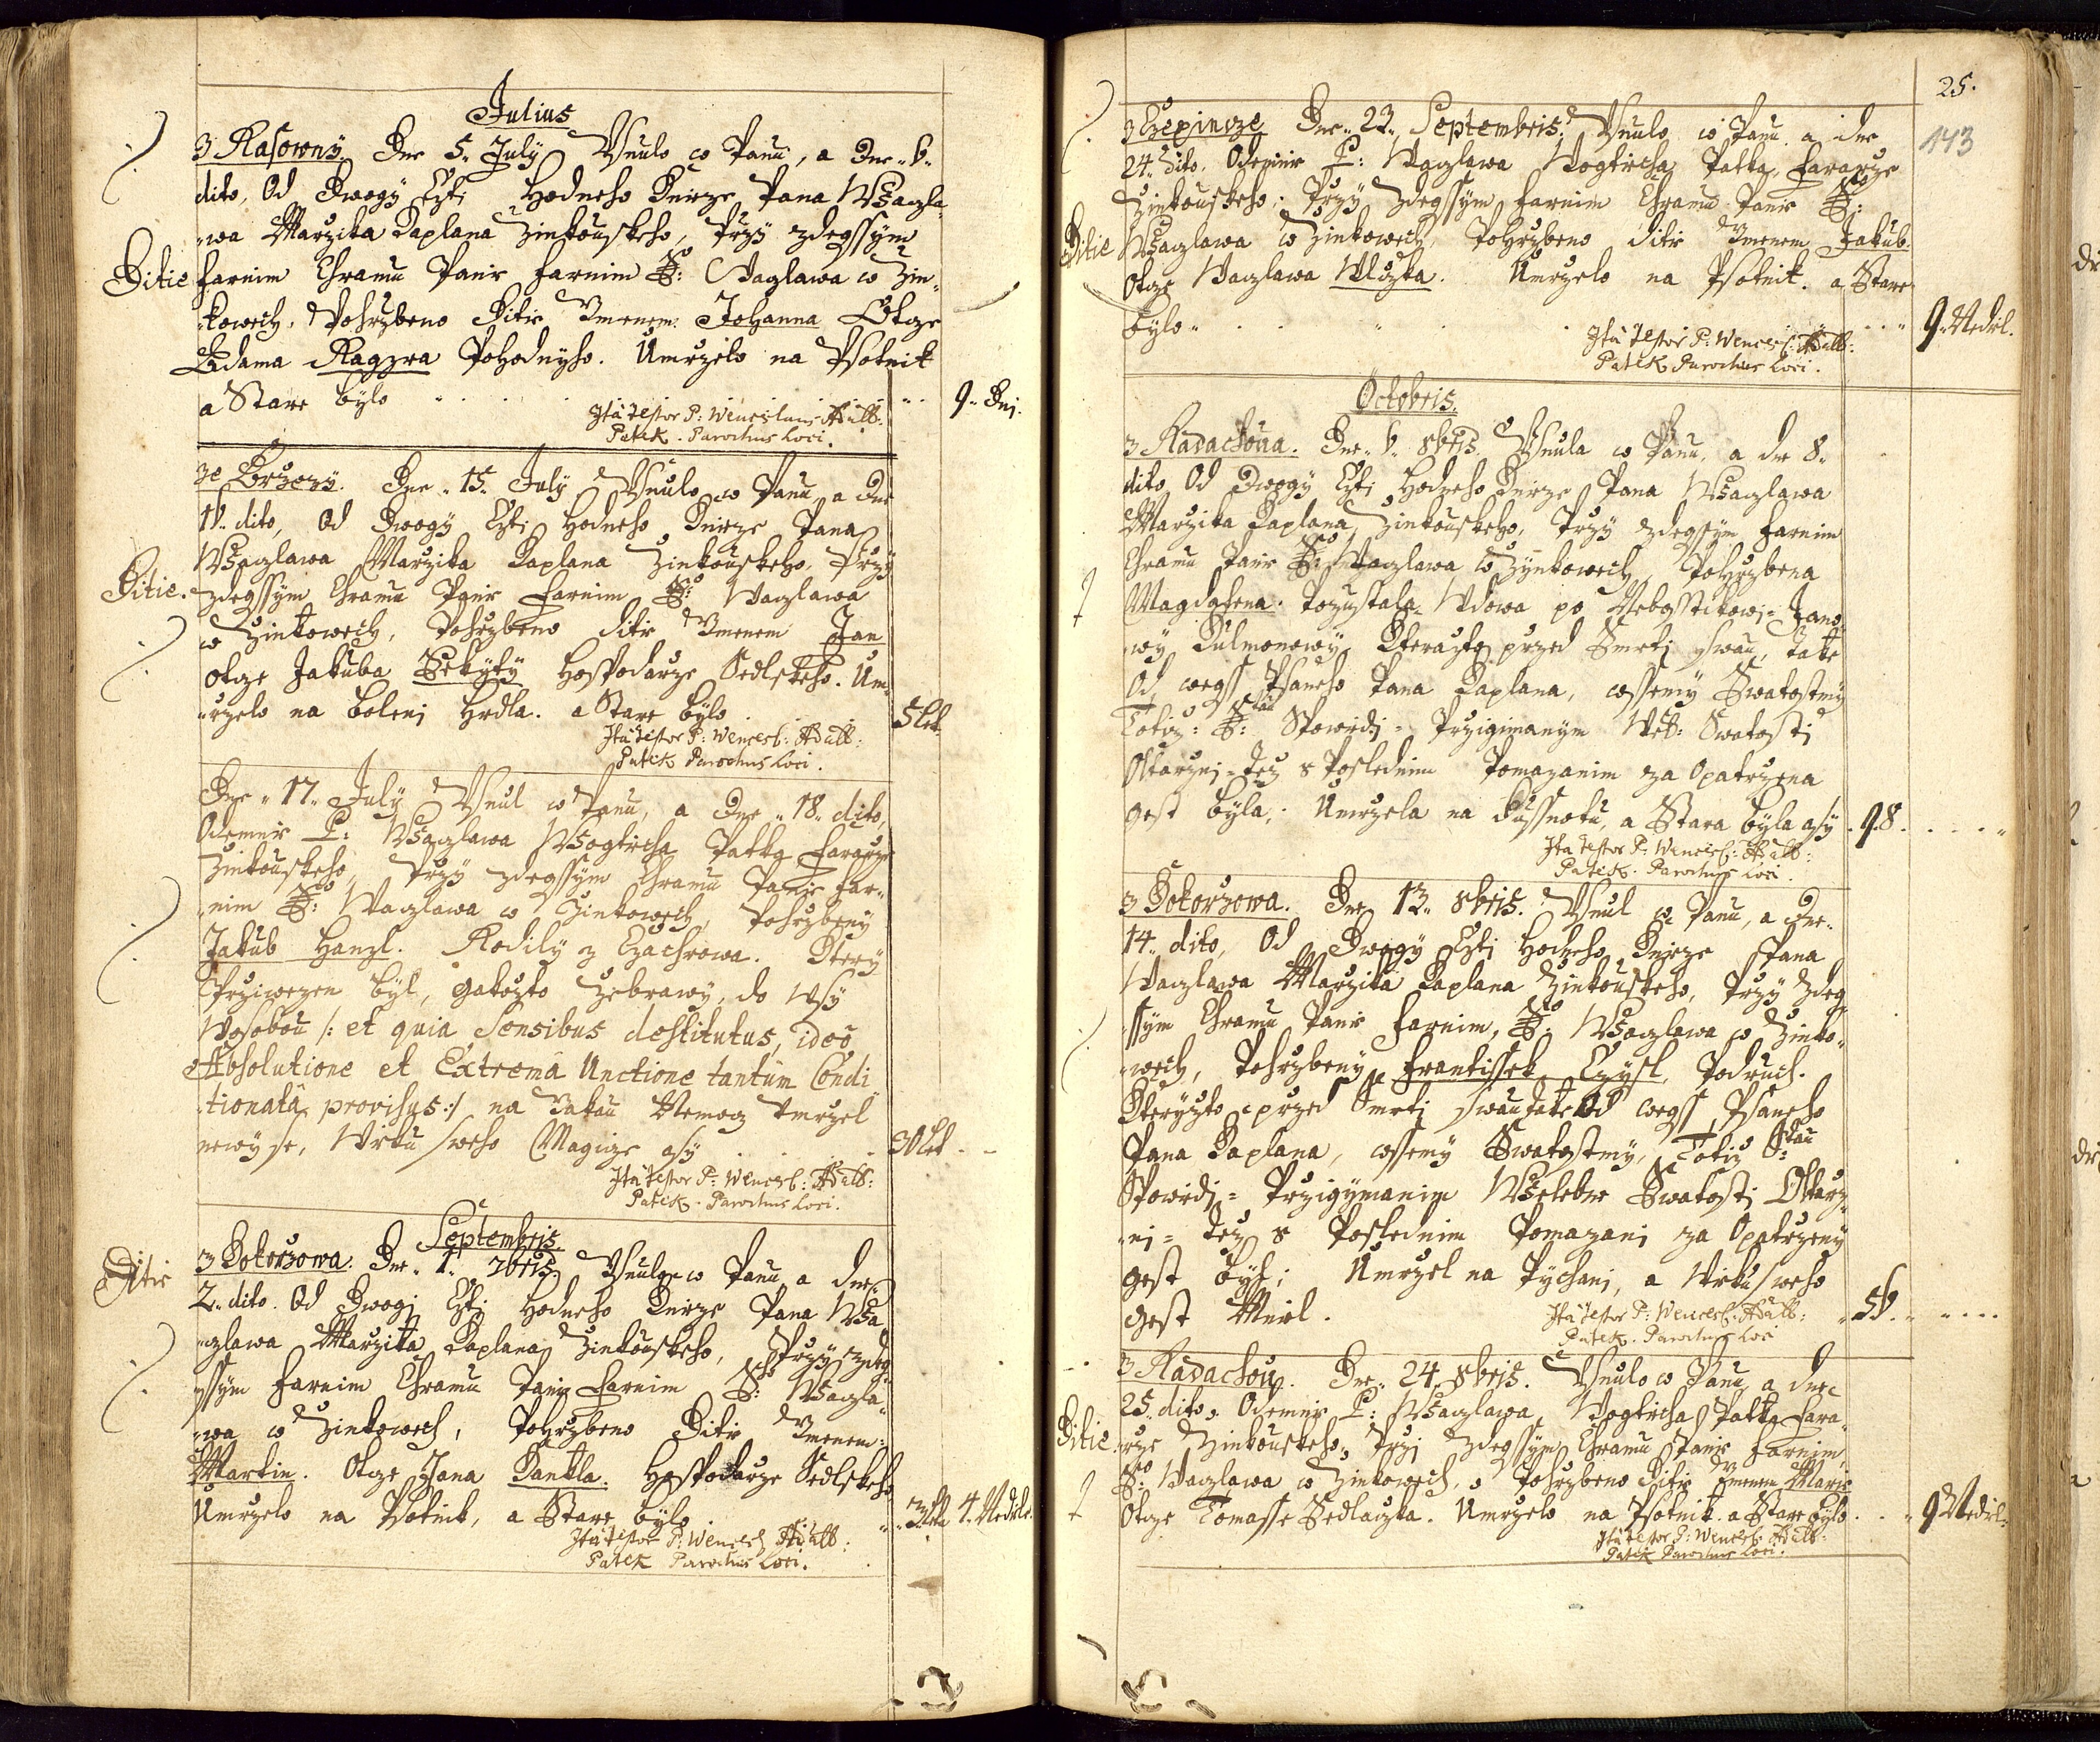 Julius
3 Rasowny. Dne 5. July Usnulo w Panu, a Dne. 6.
dito, Od Dwogy Czti Hodneho Knieze Pana Wacla-
wa Marzika Kaplana Zinkouskeho, Przy zdegssym
Ditie farnim Chramu Panie farnim S: Waclawa w Zin-
kowech, Pohrzbeno Ditie Jmenem Johanna Otcze
Adama Ragzra Pohodnyho. Umrzelo na Psotnik
a Stare bylo . . . . . 9. Dni.
Ita testor P: Wenceslaus Adalb:
Patek. Parochus Loci.
ze Borzozy. Dne. 15. July Usnulo w Panu, a dne
16. dito, Od Dwogy Czti Hodneho Knieze Pana
Waczlawa Marzika Kaplana Zinkouskeho, Przy
Ditie. zdegssym Chramu Panie Farnim S: Waczlawa
w Zinkowech, Pohrzbeno Ditie Jmenem Jan
otcze Jakuba Sekyty Hospodarze Sedlskeho. Um-
rzelo na boleni Hrdla. a Stare bylo . . 5 let
Ita testor P: Wencesl: Adalb:
Patek Parochus Loci.
Dne. 17. July Usnul w Panu, a Dne. 18. dito,
Odemnie P: Waczlawa Wogtiecha Patka Fararze
Zinkouskeho, Przy zdegssym Chramu Panie far-
nim S: Waczlawa w Zinkowech, Pohrzbeny
Jakub Hanzl. Rodily z Czachrowa. Ktery
Prziwezen byl, gakozto Zebrawy, do Wsy
Wosobou /: et quia Sensibus destitutus, ideo
Absolutione et Extrema Unctione tantum Condi
tionata provisus :/ na Takau Nemoc Umrzel
newy se, Wieku sweho Magicze asy . . . 30 let
Ita testor P: Wencesl: Adalb:
Patek. Parochus Loci.
Septembris
Ditie 3 Dokorzowa. Dne. 1. 7bris. Usnulo w Panu a dne
2. dito. Od Dwogi Czti Hodneho Knieze Pana Wa-
czlawa Marzika Kaplana Zinkouskeho, Przy zdeg-
ssym Farnim Chramu Panie Farnim S: Waczla-
wa w Zinkowech, Pohrzbeno Ditie Jmenem:
Martin. Otcze Jana Kankla. Hospodarze Sedlskeho
Umrzelo na Psotnik, a Stare bylo . . 4. Nediele
Ita testor P: Wencesl Adalb:
Patek Parochus Loci.
25.
143
3 Czepincze Dne. 23. Septembris. Usnulo w Panu a dne
24. dito. Odemnie P: Waczlawa Wogtiecha Patka, Fararze
Zinkouskeho. Przy zdegssym farnim Chramu Panie S:
Ditie Waczlawa w Zinkowech, Pohrzbeno Ditie Jmenem Jakub.
Otcze Waczlawa Wlczka. Umrzelo na Psotnik. a Stare
bylo . . . . . 9. Nediel.
Ita testor P: Wencesl: Adalb:
Patek Parochus Loci.
Octobris.
3 Radachowa. Dne. 6. 8bris. Usnula w Panu, a dne 8.
dito Od Dwogy Czti Hodneho Knieze Pana Waczlawa
Marzika Kaplana Zinkouskeho, Przy zdegssym farnim
Chramu Panie S: Waczlawa w Zynkowech, Pohrzbena
Magdalena. Pozustala Wdowa po Nebosstikowi Jano
wy Kulmonowy, Kterazto przed Smrti swau, Take
Od, wegss Psaneho Pana Kaplana, wssemy Swatostmi
Totiz: S: Spowiedi = Przigimanym Weleb: Swatosti
Oltarzni = Tez s Poslednim Pomazanim za Opatrzena
gest byla. Umrzela na dussnotu, a Stara byla asy . 98.
Ita testor P: Wencesl: Adalb:
Patek. Parochus Loci.
3 Dokorzowa. Dne 13. 8bris. Usnul w Panu, a Dne.
14. dito, Od Dwogy Czti Hodneho Knieze Pana
Waczlawa Marzika Kaplana Zinkouskeho, Przy zdeg-
ssym Chramu Panie Farnim, S: Waczlawa w Zinko-
wech, Pohrzbeny Frantissek Czysl, Podruch.
Kteryzto przed Smrti swau take Od wegss Psaneho
Pana Kaplana, wssemy Swatostmy, Totiz S:
Spowiedi = Przigymanim Weleb Swatosti Oltarz-
ni = Tez s Poslednim Pomazani za Opatrzeny
gest byl; Umrzel na Pychani, a Wieku sweho
gest Miel. 56.
Ita testor P: Wencesl. Adalb:
Patek. Parochus Loci
3 Radachow. Dne. 24. 8bris. Usnulo w Panu a dne
25. dito. Odemnie P: Waczlawa Wogtiecha Patka Fara-
Ditie. rze Zinkouskeho, Przi zdegssym Chramu Panie Farnim,
S: Waczlawa w Zinkowech, Pohrzbeno Ditie Jmenem Marie
Otcze Tomasse Sedlaczka. Umrzelo na Psotnik. a Stare bylo . . 9 Nediel.
Ita testor P: Wencesl: Adalb:
Patek Parochus Loci.